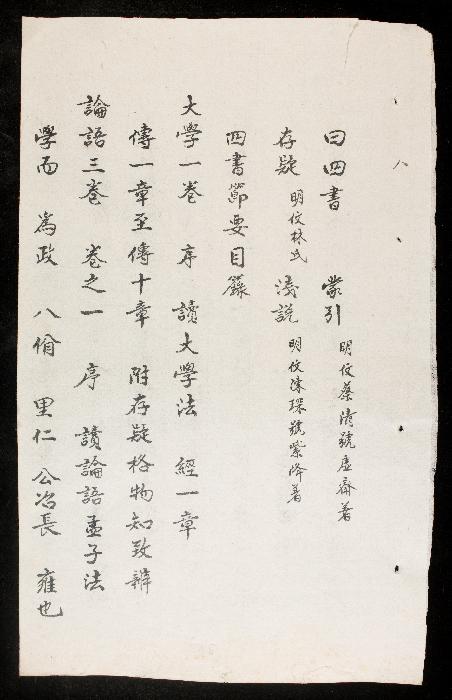 曰四書　蒙引 明伩蔡清號虛齋著
存疑 明伩林氏 淺說 明伩陳琛號紫峰著
四書節要目錄
大學一卷　序　讀大學法　經一章
傳一章至傳十章　附存疑格物知致辨
論語三卷　卷之一　序　讀論語孟子法
學而　為政　八佾　里仁　公冶長　雍也